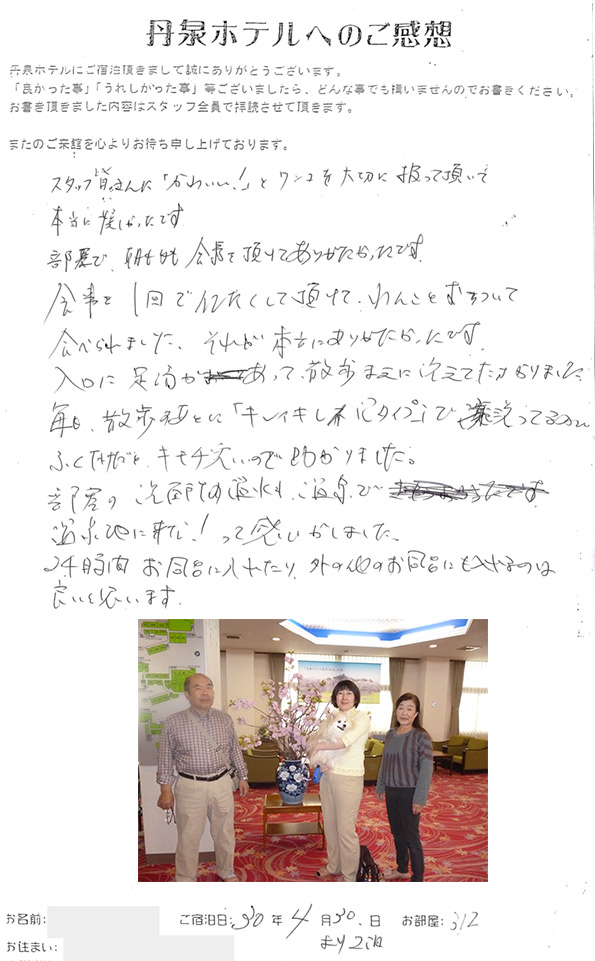 丹泉ホテルへのご感想
丹泉ホテルにご宿泊頂きまして誠にありがとうございます。
「良かった事」「うれしかった事」等ございましたら、どんな事でも構いませんのでお書きください。
お書き頂きました内容はスタッフ全員で拝読させて頂きます。
またのご来館を心よりお待ち申し上げております。
スタッフ皆さんに「かわいい!」とワンコを大切に扱って頂いて
本当に嬉しかったです
部屋で、朝も 食事を頂けてありがたかったです。
食事を1回で 頂けて、わんこと
食べられました、それが本当にありがたかったです。
入口に足湯が あって、散歩 に ました。
毎日、散歩のあとに「キレイキレイ タイプ」で 洗って
ふくだけだと、キモチ悪いので助かりました。
部屋の洗面所の 温泉で
温泉地に来た!って感じがしました、
24時間お風呂に入れたり、外の他のお風呂にも入れるのは
良いと思います。
お名前: ご宿泊日:30年4月30日 お部屋:312
より2泊
お住まい: